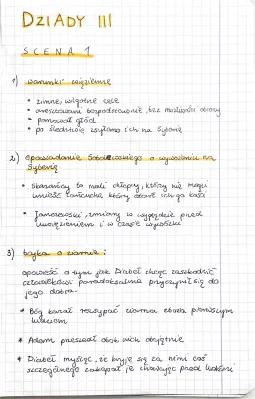 DZIADY III
SCENA 1
1) warunki więzienne
• zimne, wilgotne cele
• aresztowani bezpodstawnie, bez możliwości obrony
• panował głód
• po śledztwie zsyłano ich na Syberię
2) opowiadanie Sobolewskiego o wywożeniu na
Syberię
• skazańcy to mali chłopcy, którzy nie mogą
unieść łańcucha, który
• Janczewski, zmiany w wyglądzie przed
uwięzieniem i w czasie wywózki
3) bajka o ziarnie:
opowieść o tym jak Diabeł chcąc zaszkodzić
człowiekowi paradoksalnie przyczynił się do
jego dobra.
* Bóg kazał rozsypać ziarna zboża pierwszym
ludziom
* Adam przeszedł obok nich obojętnie
* Diabeł myśląc, że kryje się za nimi coś
szczególnego zakopał je chowając przed ludźmi